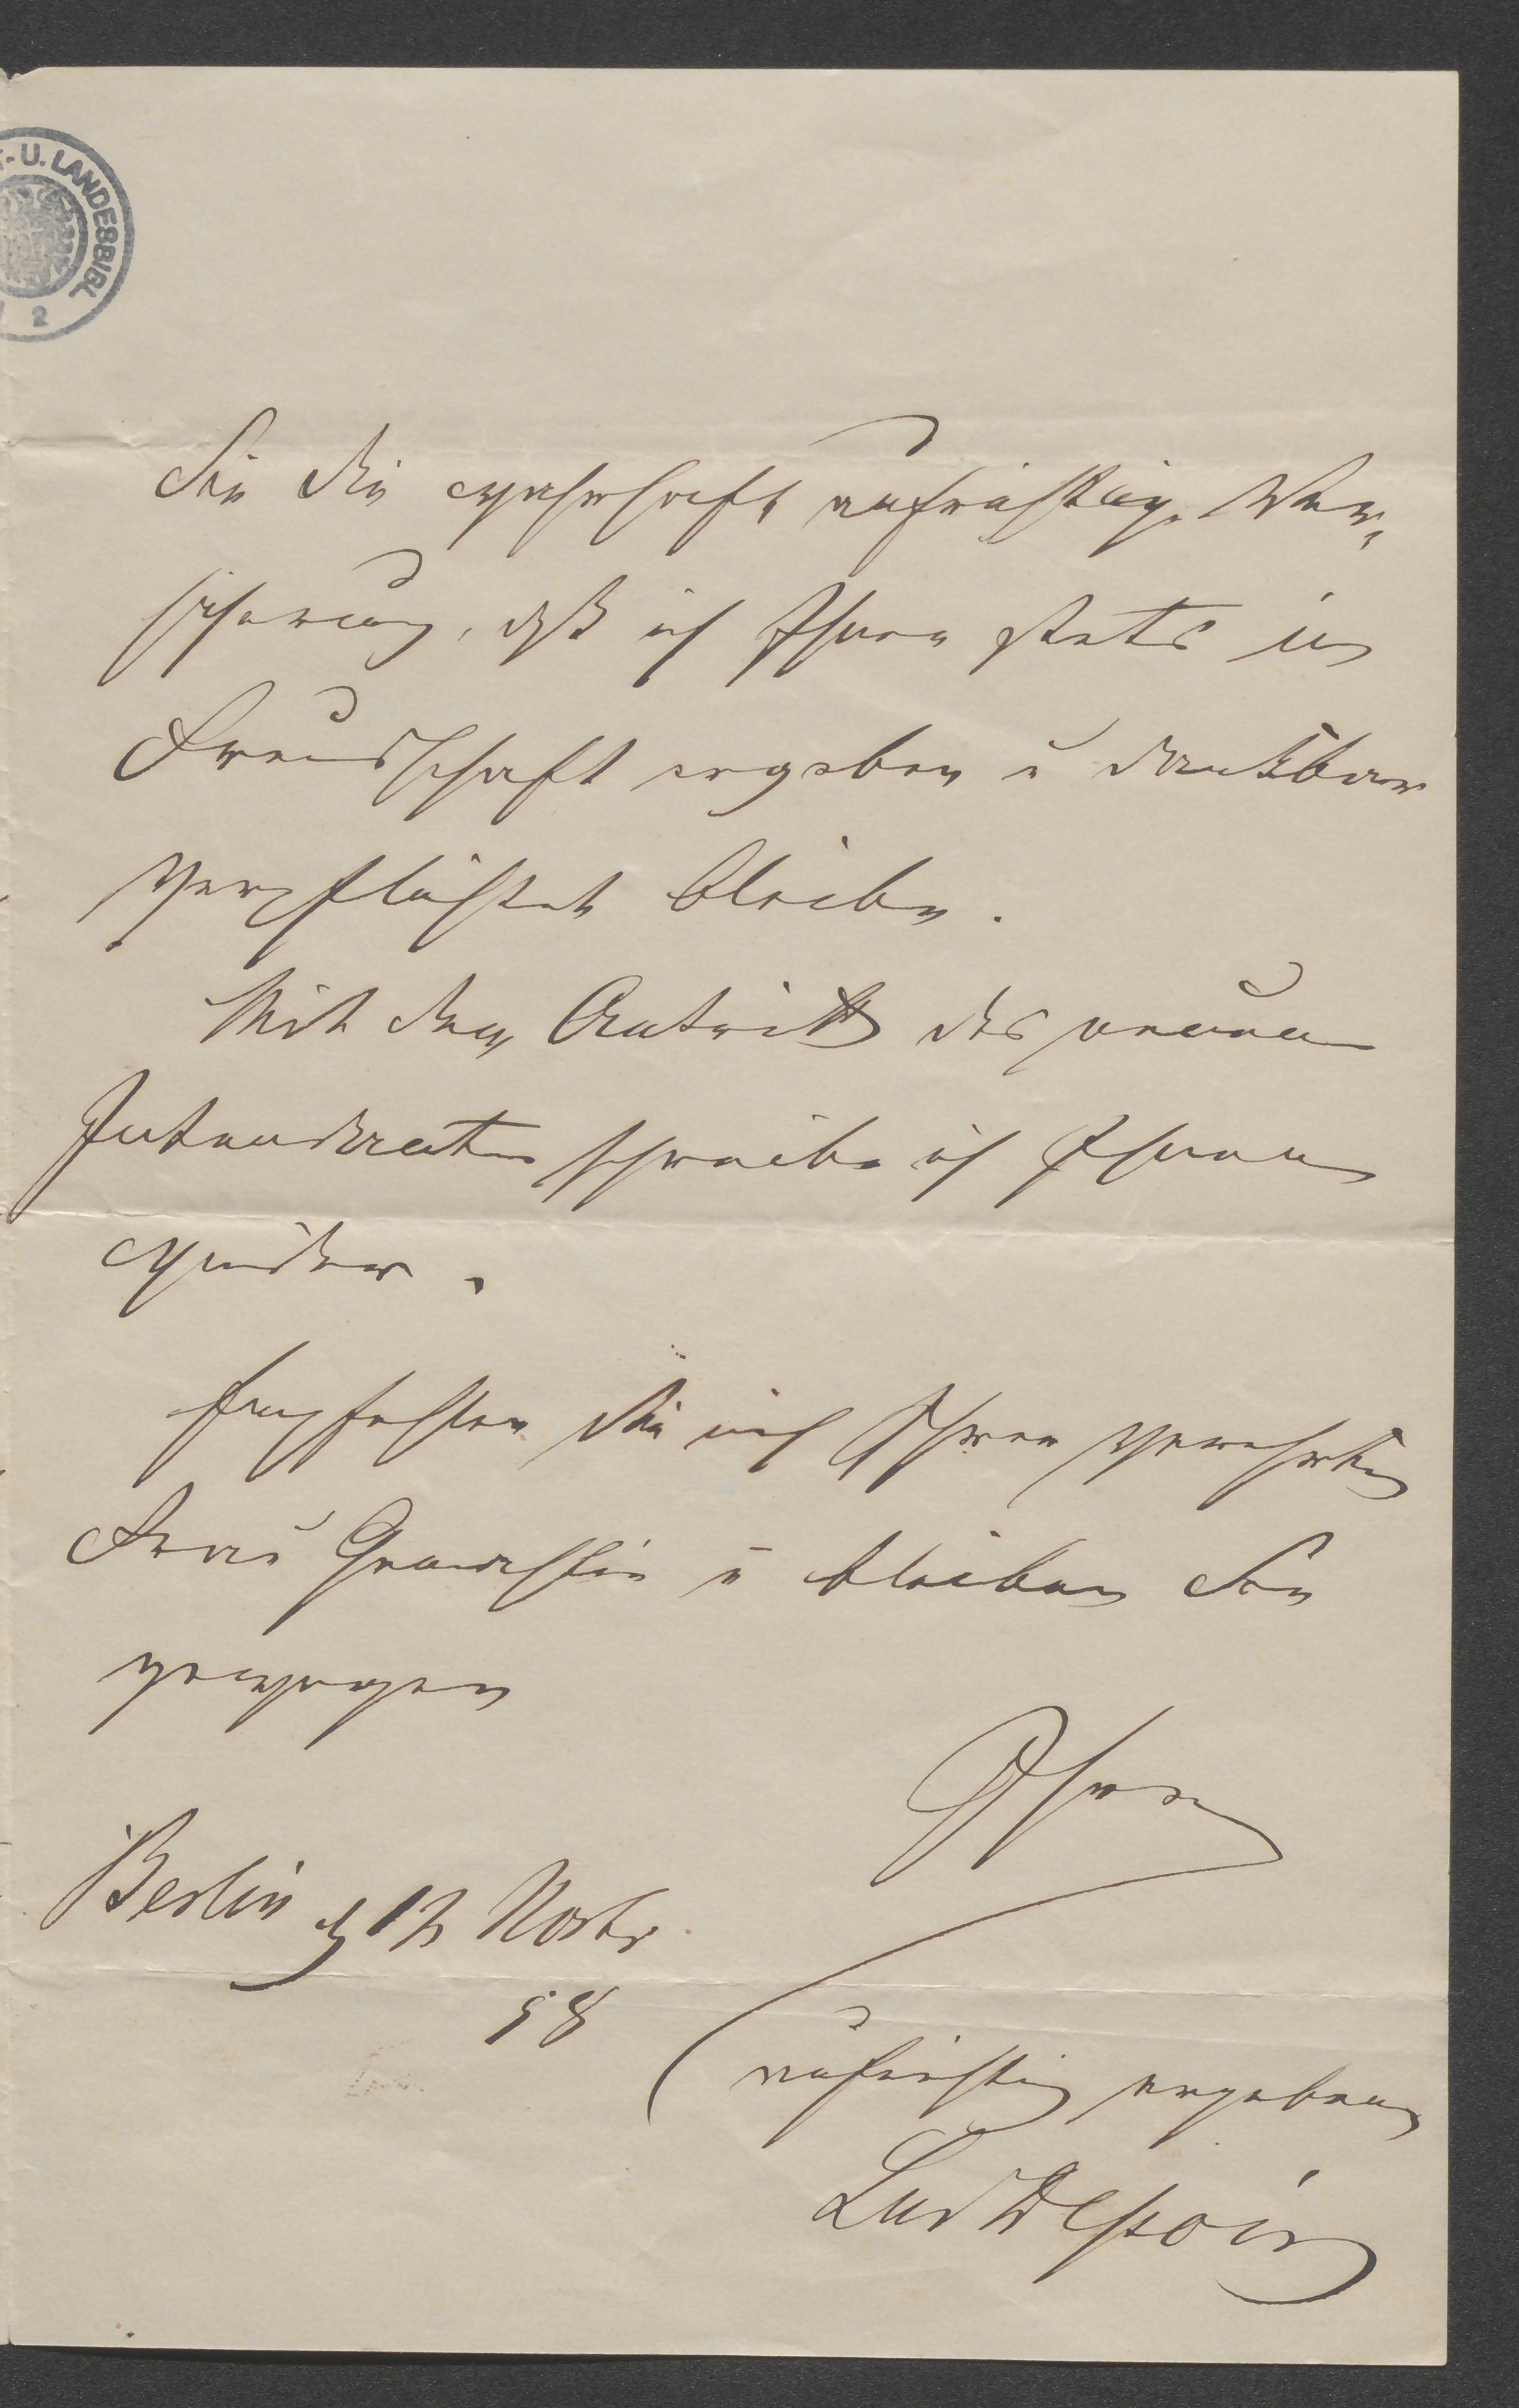 T-U. LANDESBIBL
2
Sie die wahrhaft aufrichtige Ver-
sicherung, daß ich Ihnen stets in
Freundschaft ergeben u dankbar
verpflichtet bleibe.
Mit dem Antritt des neuen
Intendanten schreibe ich Ihnen
wieder.
Empfehlen Sie mich Ihrer verehrten
Frau Gemahlin u bleiben Sie
gewogen
Ihrem
Berlin d 12 Novbr
58
aufrichtig ergebenen
Lud Dessoir